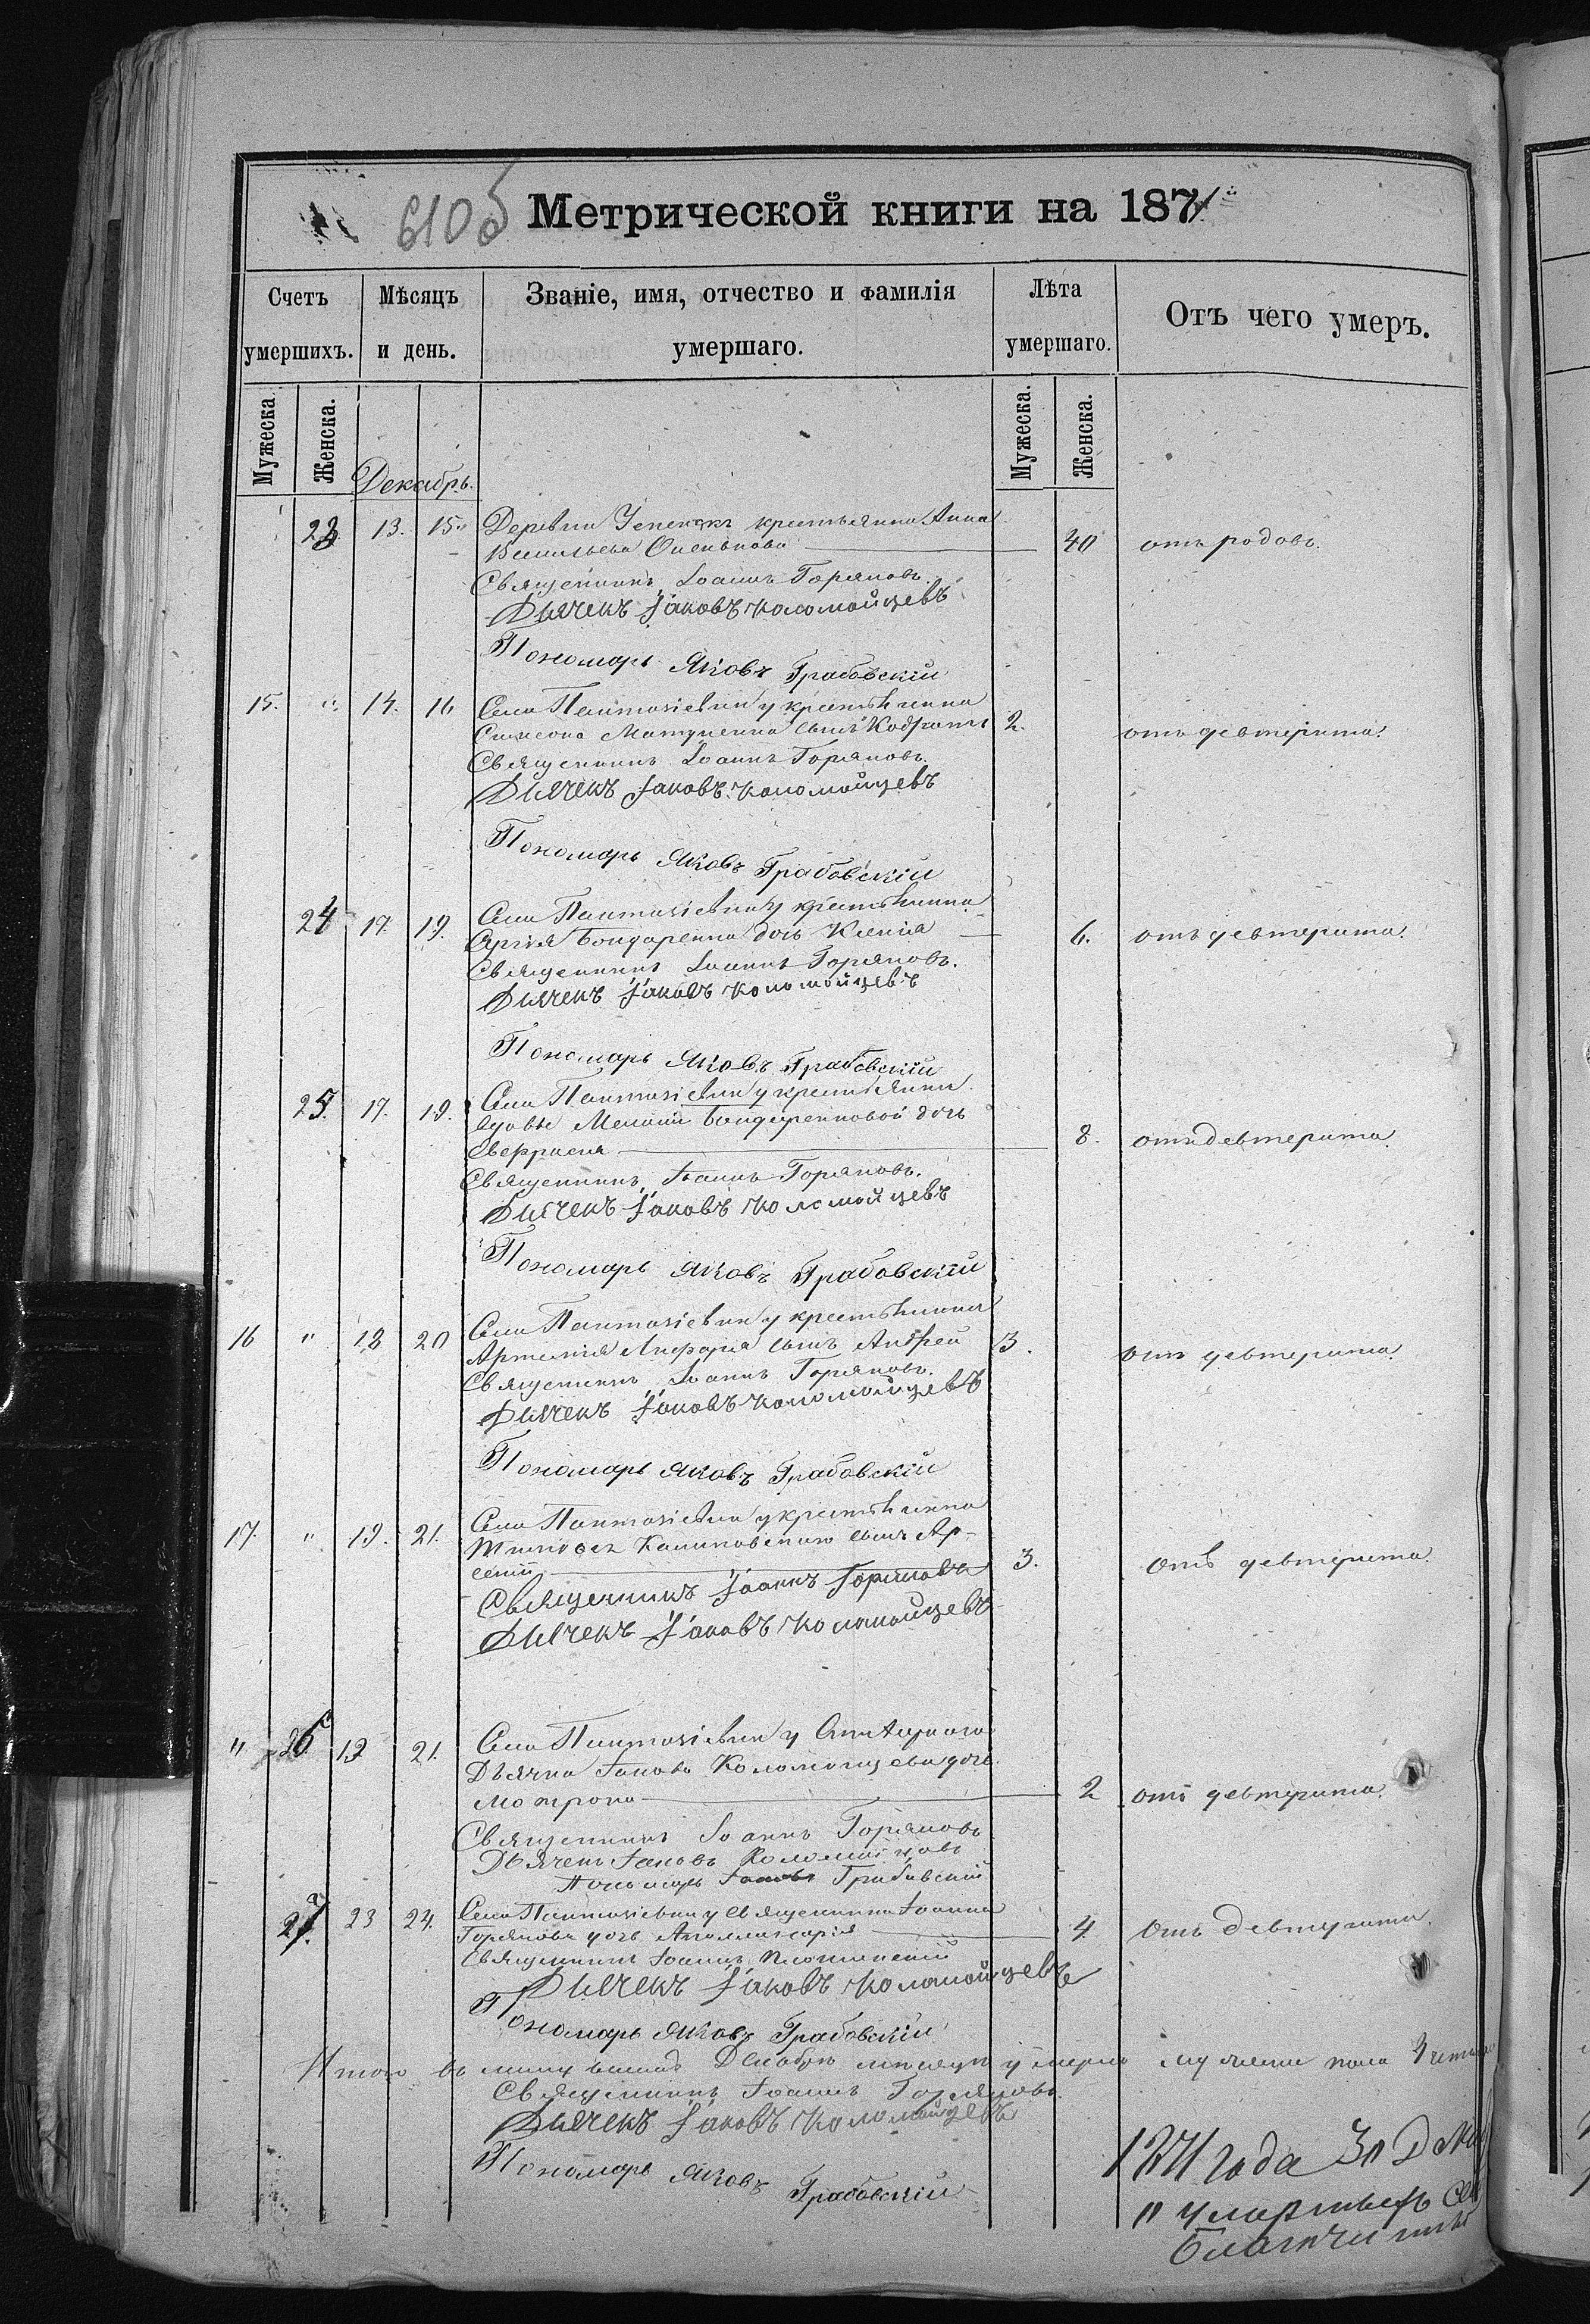 610об Метрической книги на 1871
Счетъ умершихъ. Мѣсяцъ и день. Званіе, имя, отчество и фамилія умершаго. Лѣта умершаго. Отъ чего умеръ.
Мужеска Женска. Мужеска. Женска.
Декабрь.
23 13. 15 Деревни крестьянина Анна
Васильева 40 отъ родовъ.
Священникъ Іоаннъ Горяновъ.
Дьячекъ Іаковъ Коломойцевъ
Пономарь Яковъ Грабовскій
15. " 14. 16 Села Пантазіевки у крестьянина
Симеона сынъ Кодратъ 2. отъ девтерита.
Священникъ Іоаннъ Горяновъ.
Дьячекъ Іаковъ Коломойцевъ
Пономарь Яковъ Грабовскій
24 17. 19. Села Пантазіевки у крестьянина
Сергія Бондаренка дочь Ксенія 6. отъ девтерита.
Священникъ Іоаннъ Горяновъ.
Дьячекъ Іаковъ Коломойцевъ
Пономарь Яковъ Грабовскій
25. 17. 19. Села Пантазіевки у крестьянки
вдовы Меланіи Бондаренковой дочь
Евфросія 8. отъ девтерита.
Священникъ Іоаннъ Горяновъ.
Дьячекъ Іаковъ Коломойцевъ
Пономарь Яковъ Грабовскій
16 " 18 20 Села Пантазіевки у крестьянина
Артемія сынъ Андрей 3. отъ девтерита.
Священникъ Іоаннъ Горяновъ.
Дьячекъ Іаковъ Коломойцевъ
Пономарь Яковъ Грабовскій
17. " 19. 21. Села Пантазіевки у крестьянина
Калиновскаго сынъ Ар-
сеній 3. отъ девтерита.
Священникъ Іоаннъ Горяновъ
Дьячекъ Іаковъ Коломойцевъ
" 26 19 21. Села Пантазіевки у
Дьячка Іакова Коломойцева дочь
Мотрона 2 отъ девтерита.
Священникъ Іоаннъ Горяновъ
Дьячекъ Іаковъ Коломойцовъ
Пономарь Іаковъ Грабовскій
27. 23 24. Села Пантазіевки у священника Іоанна
Горянова дочь Аполлинарія 4. отъ девтерита.
Священникъ Іоаннъ
Дьячекъ Іаковъ Коломойцевъ
Пономарь Яковъ Грабовскій
Итого въ Декабрѣ мѣсяцѣ умерло мужеска пола
Священникъ Іоаннъ Горяновъ.
Дьячекъ Іаковъ Коломойцевъ
Пономарь Яковъ Грабовскій
1871 года